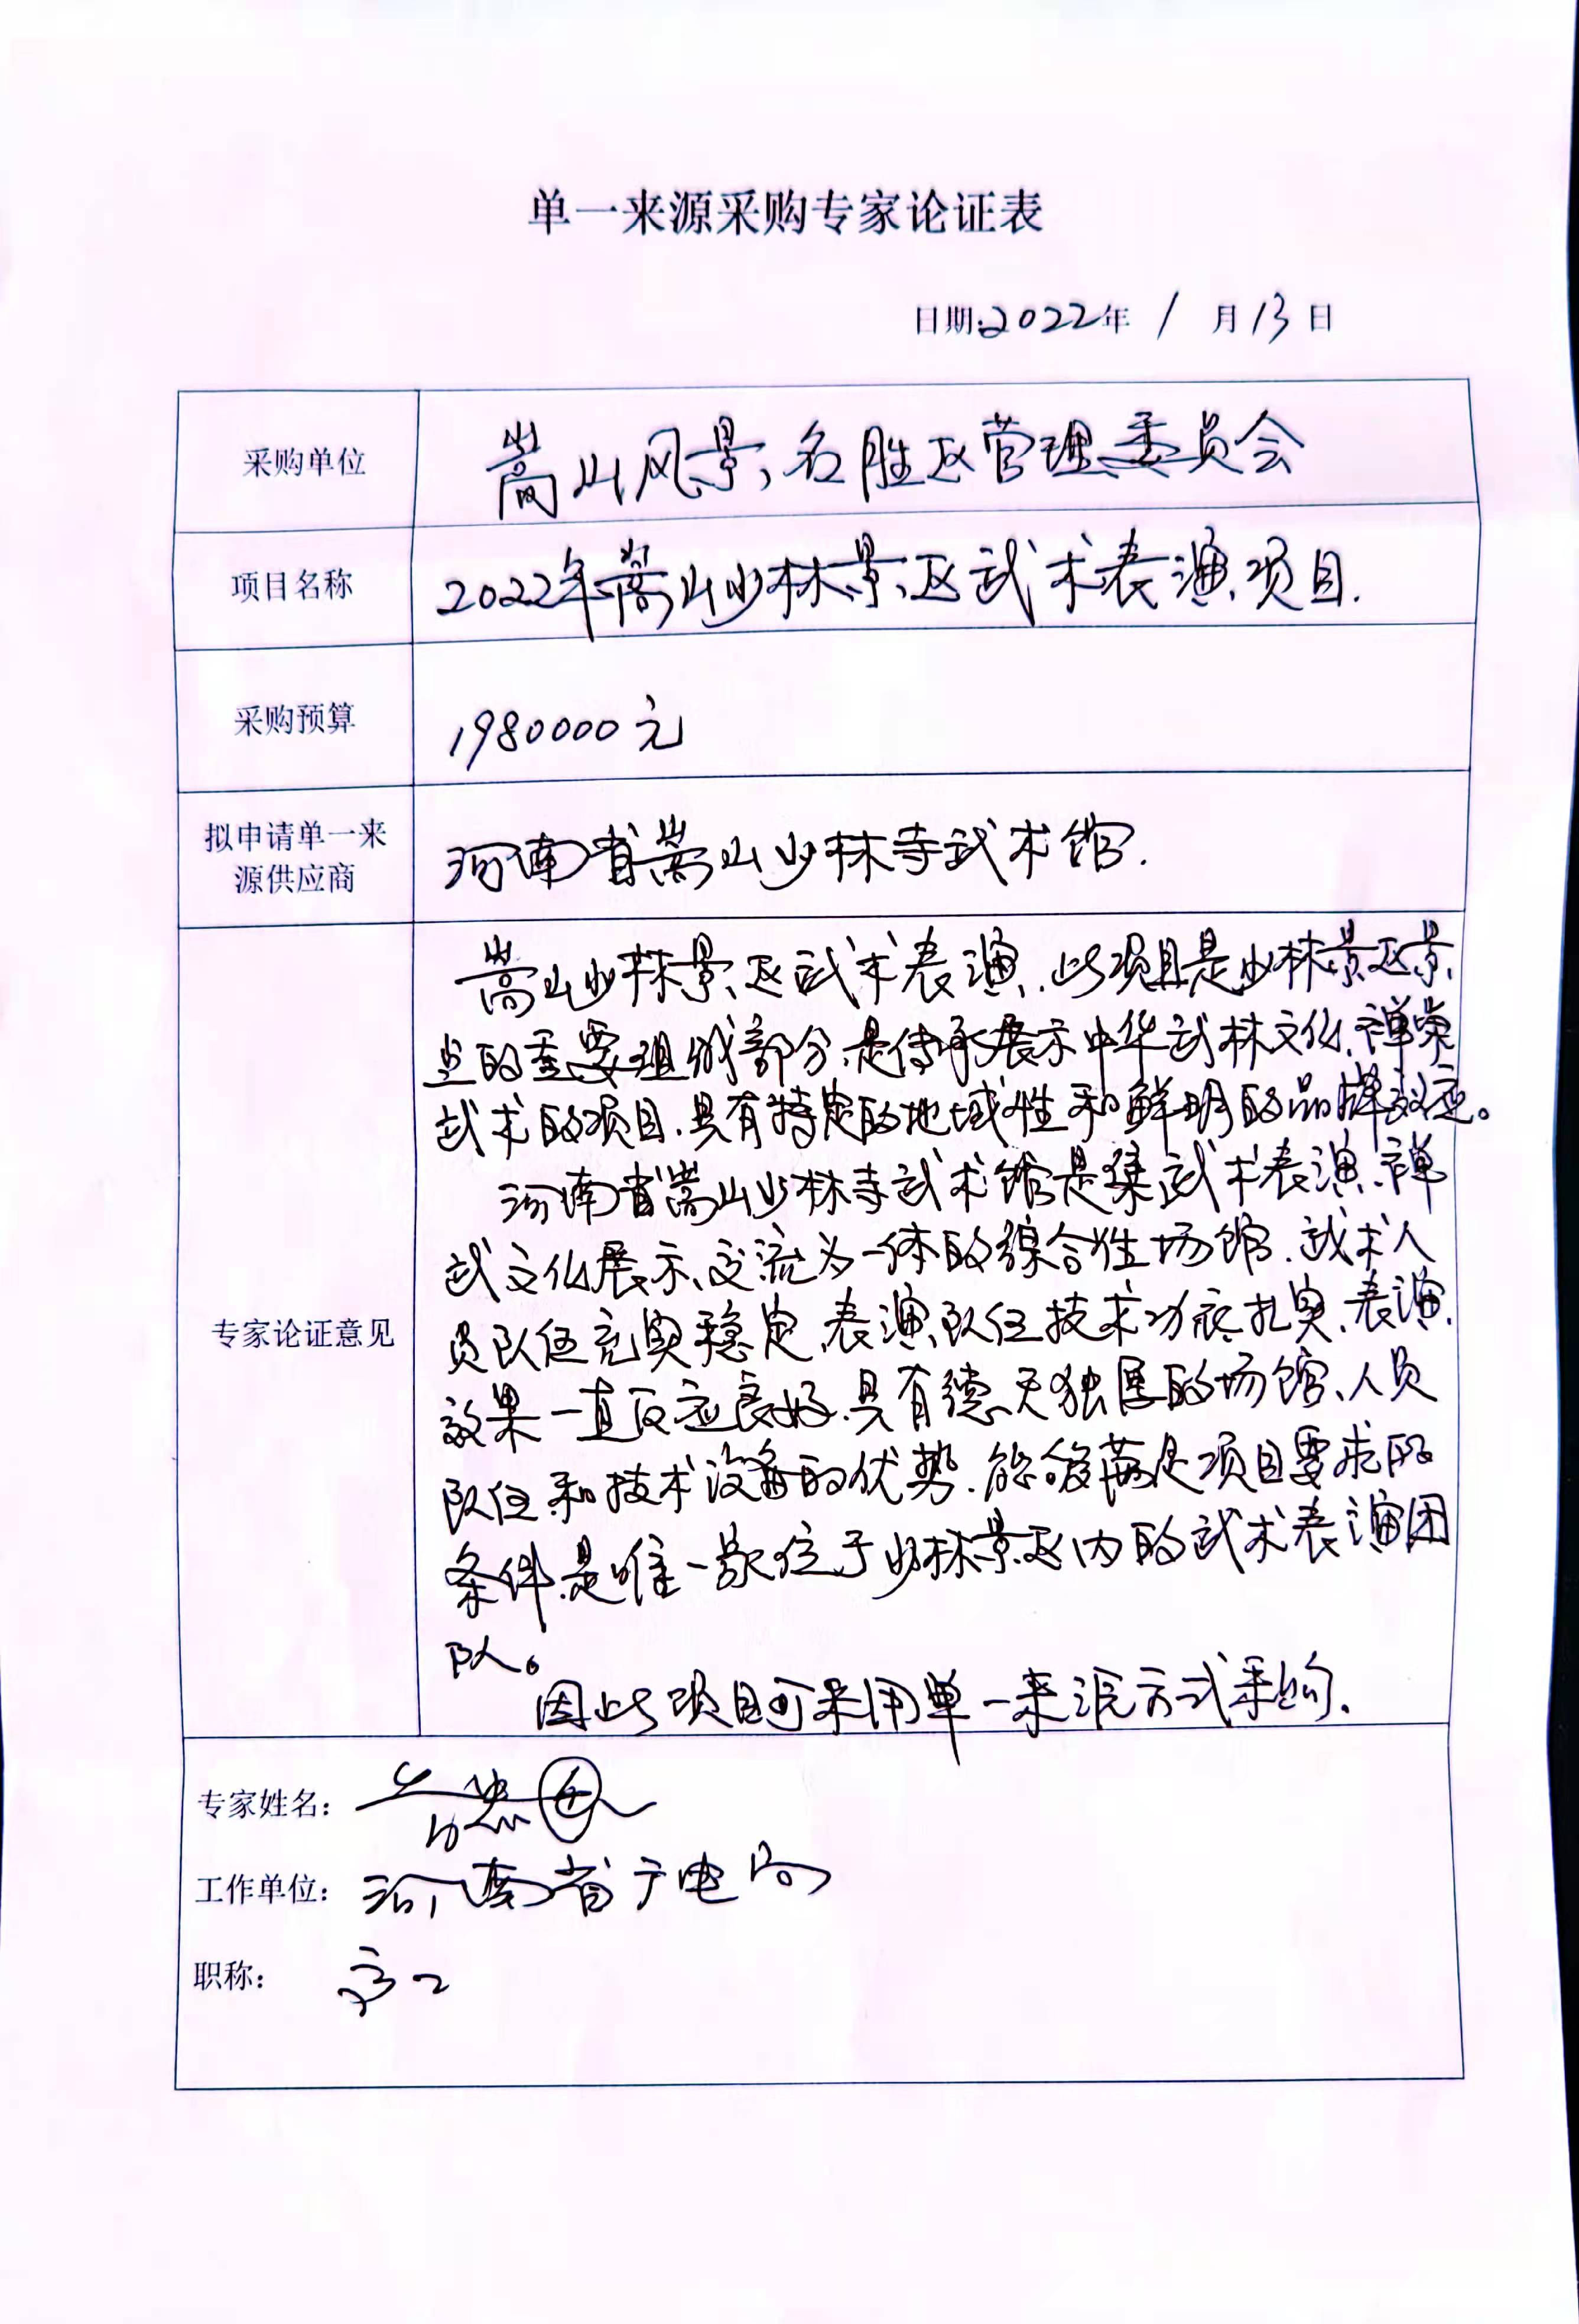 单一来源采购专家论证表
日期:2022年 1 月13日
采购单位
嵩山风景名胜区管理委员会
项目名称
2022年嵩山少林景区武术表演项目.
采购预算
1980000元
拟申请单一来
源供应商
河南省嵩山少林寺武术馆.
专家论证意见
嵩山少林景区武术表演.此项目是少林景区景
点的重要组成部分,是传承展示中华武林文化、禅宗
武术的项目.具有特定的地域性和鲜明的品牌效应。
河南省嵩山少林寺武术馆是集武术表演、禅
武文化展示、交流为一体的综合性场馆.武术人
员队伍充实稳定、表演队伍技术功底扎实、表演
效果一直反应良好.具有德天独厚的场馆、人员
队伍和技术设备的优势.能够满足项目要求的
条件.是唯一一家位于少林景区内的武术表演团
队。
因此项目可采用单一来源方式采购.
专家姓名:
工作单位: 河南省广电局
职称: 高工